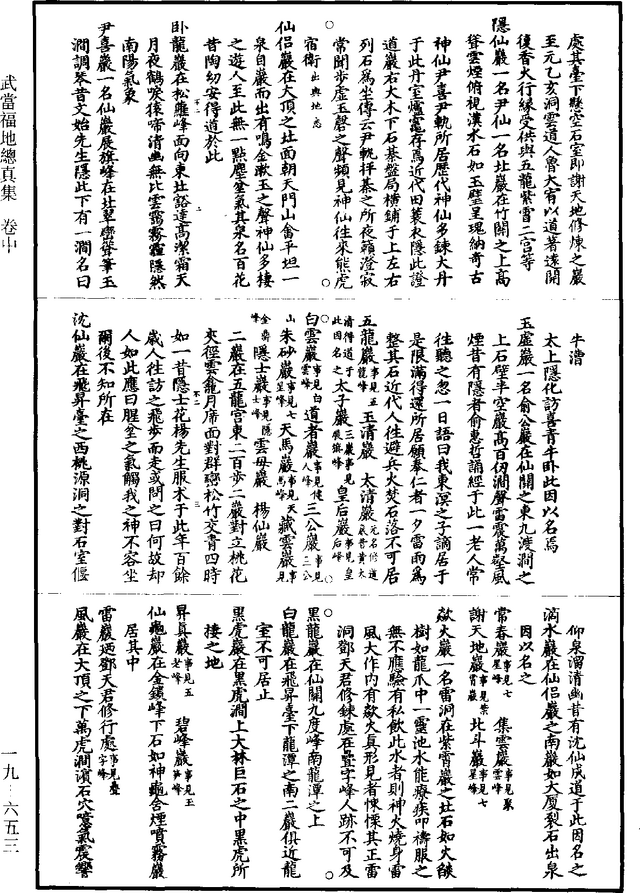 處其臺下懸空石室即謝天地修煉之巖
至元乙亥洞雲道人魯大宥以道著遠開
復香火行緣受供與五龍紫霄二宮等
隱仙巖一名尹仙一名北巖在竹關之上高
聳雲煙俯視漢水石如玉璧呈瑰納奇古
神仙尹喜尹軌所居歷代神仙多鍊大丹
于此丹室爐竈存焉近代田蓑衣隱此證
道巖右大木下石棊盤局橫鋪于上左右
列石為坐傳云尹軌拜棊之所夜籟澄寂
常聞步虛玉磬之聲頻見神仙往來熊虎
宿衛出輿地志
仙侶巖在大頂之北面朝天門山舍平坦一
泉自巖而出有鳴金漱玉之聲神仙多棲
之遊人至此無一點塵坌氣其泉名百花
昔陶幼安得道於此
臥龍巖在松蘿峰面向東北豁達高潔霜天
月夜鶴唳猿啼清幽無比雲靄霧霾隱然
南陽氣象
尹喜巖一名仙巖展旗峰在北翠麐聳筆玉
澗調琴昔文始先生隱此下有一澗名曰
牛漕
太上隱化訪喜青牛臥此因以名焉
玉虛巖一名俞公巖在仙關之東九渡澗之
上石壁半空巖高百仞澗聲雷震萬壑風
煙昔有隱者俞惠哲誦經于此一老人常
往聽之忽一日語曰我東溟之子謫居于
是限滿得還所居願奉仁者一夕雷雨為
整其石近代人往避兵火焚石落不可居
五龍巖事見五龍峰 玉清巖 太清巖
清得道于此因名之 太子巖 皇后巖事見皇后峰
白雲巖事見白雲峰 道者巖 三公巖事見三公
山 朱砂巖事見七星峰 天馬巖事見天馬峰 藏雲巖事見
金 隱士巖事見隱士峰 雲母巖 楊仙巖
二巖在五龍宮東二百步二巖對立桃花
夾徑雲龕月席面對群巒松竹交青四時
如一昔隱士花楊先生服朮于此年百餘
歲人往訪之飛步而走或問之曰何故却
人如此應曰腥坌之氣觸我之神不容坐
爾後不知所在
沈仙巖在飛昇臺之西桃源洞之對石室偃
仰泉溜清幽昔有沈仙成道于此因名之
滴水巖在仙侶巖之南巖如大廈裂石出泉
因以名之
常春巖事見七星峰 集雲巖事見聚雲峰
謝天地巖事見紫霄巖 北斗巖事見七星峰
歘火巖一名雷洞在紫霄巖之北石如火燄
樹如龍爪中一靈池水能療疾叩禱服之
無不應驗有私飲此水者則神火燒身雷
風大作內有歘火真形見者慄慄其正雷
洞鄧天君修鍊處在疊字峰人跡不可及
黑龍巖在仙關九度峰南龍潭之上
白龍巖在飛昇臺下龍潭之南二巖俱近龍
室不可居止
黑虎巖在黑虎澗上大林巨石之中黑虎所
棲之地
昇真巖事見五老峰 碧峰巖事見玉筍峰
仙龜巖在金鎖峰下石如神龜含煙噴霧巖
居其中
雷巖廼鄧天君修行處事見疊字峰
風巖在大頂之下萬虎澗濱石穴噫氣震響
武當福地總真集 卷中
一九－六五三